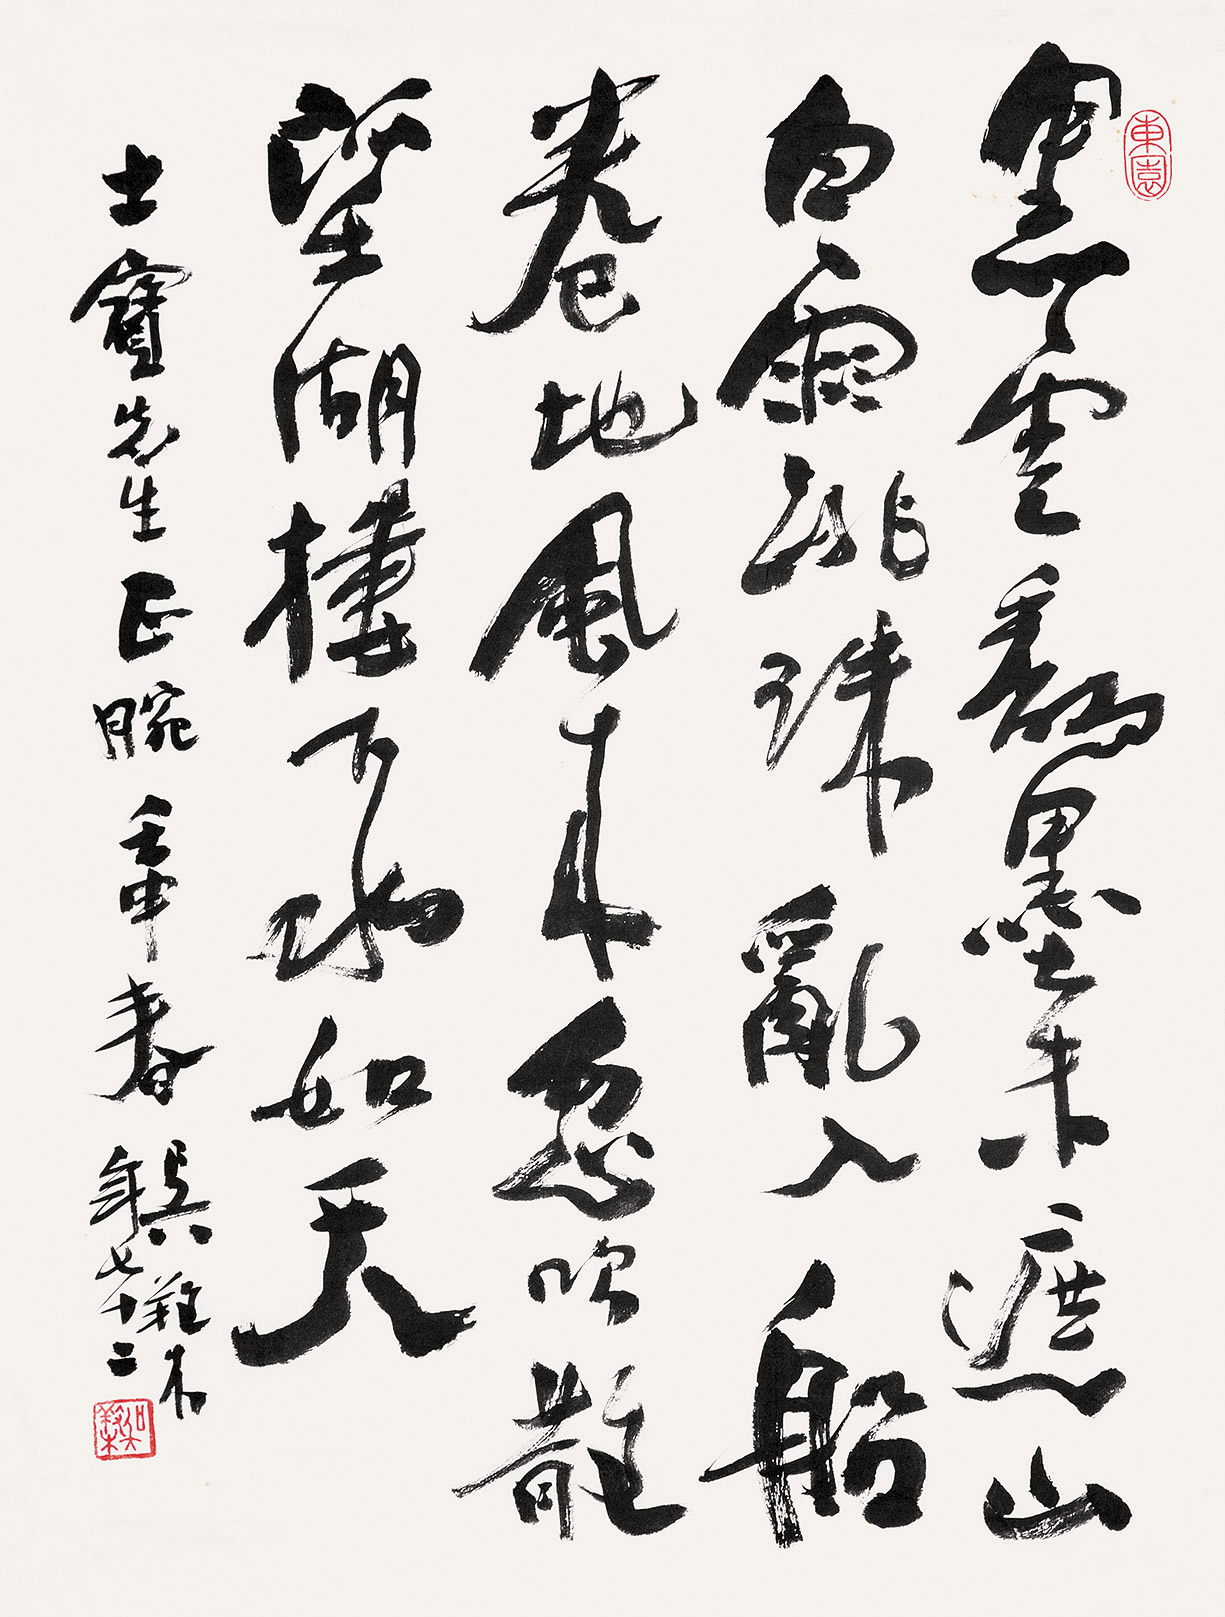 黑雲翻墨未遮山
白雨跳珠亂入船
卷地風來忽吹散
望湖樓下水如天
士寶先生正腕 壬申春 吳䍩木
年七十二
東園